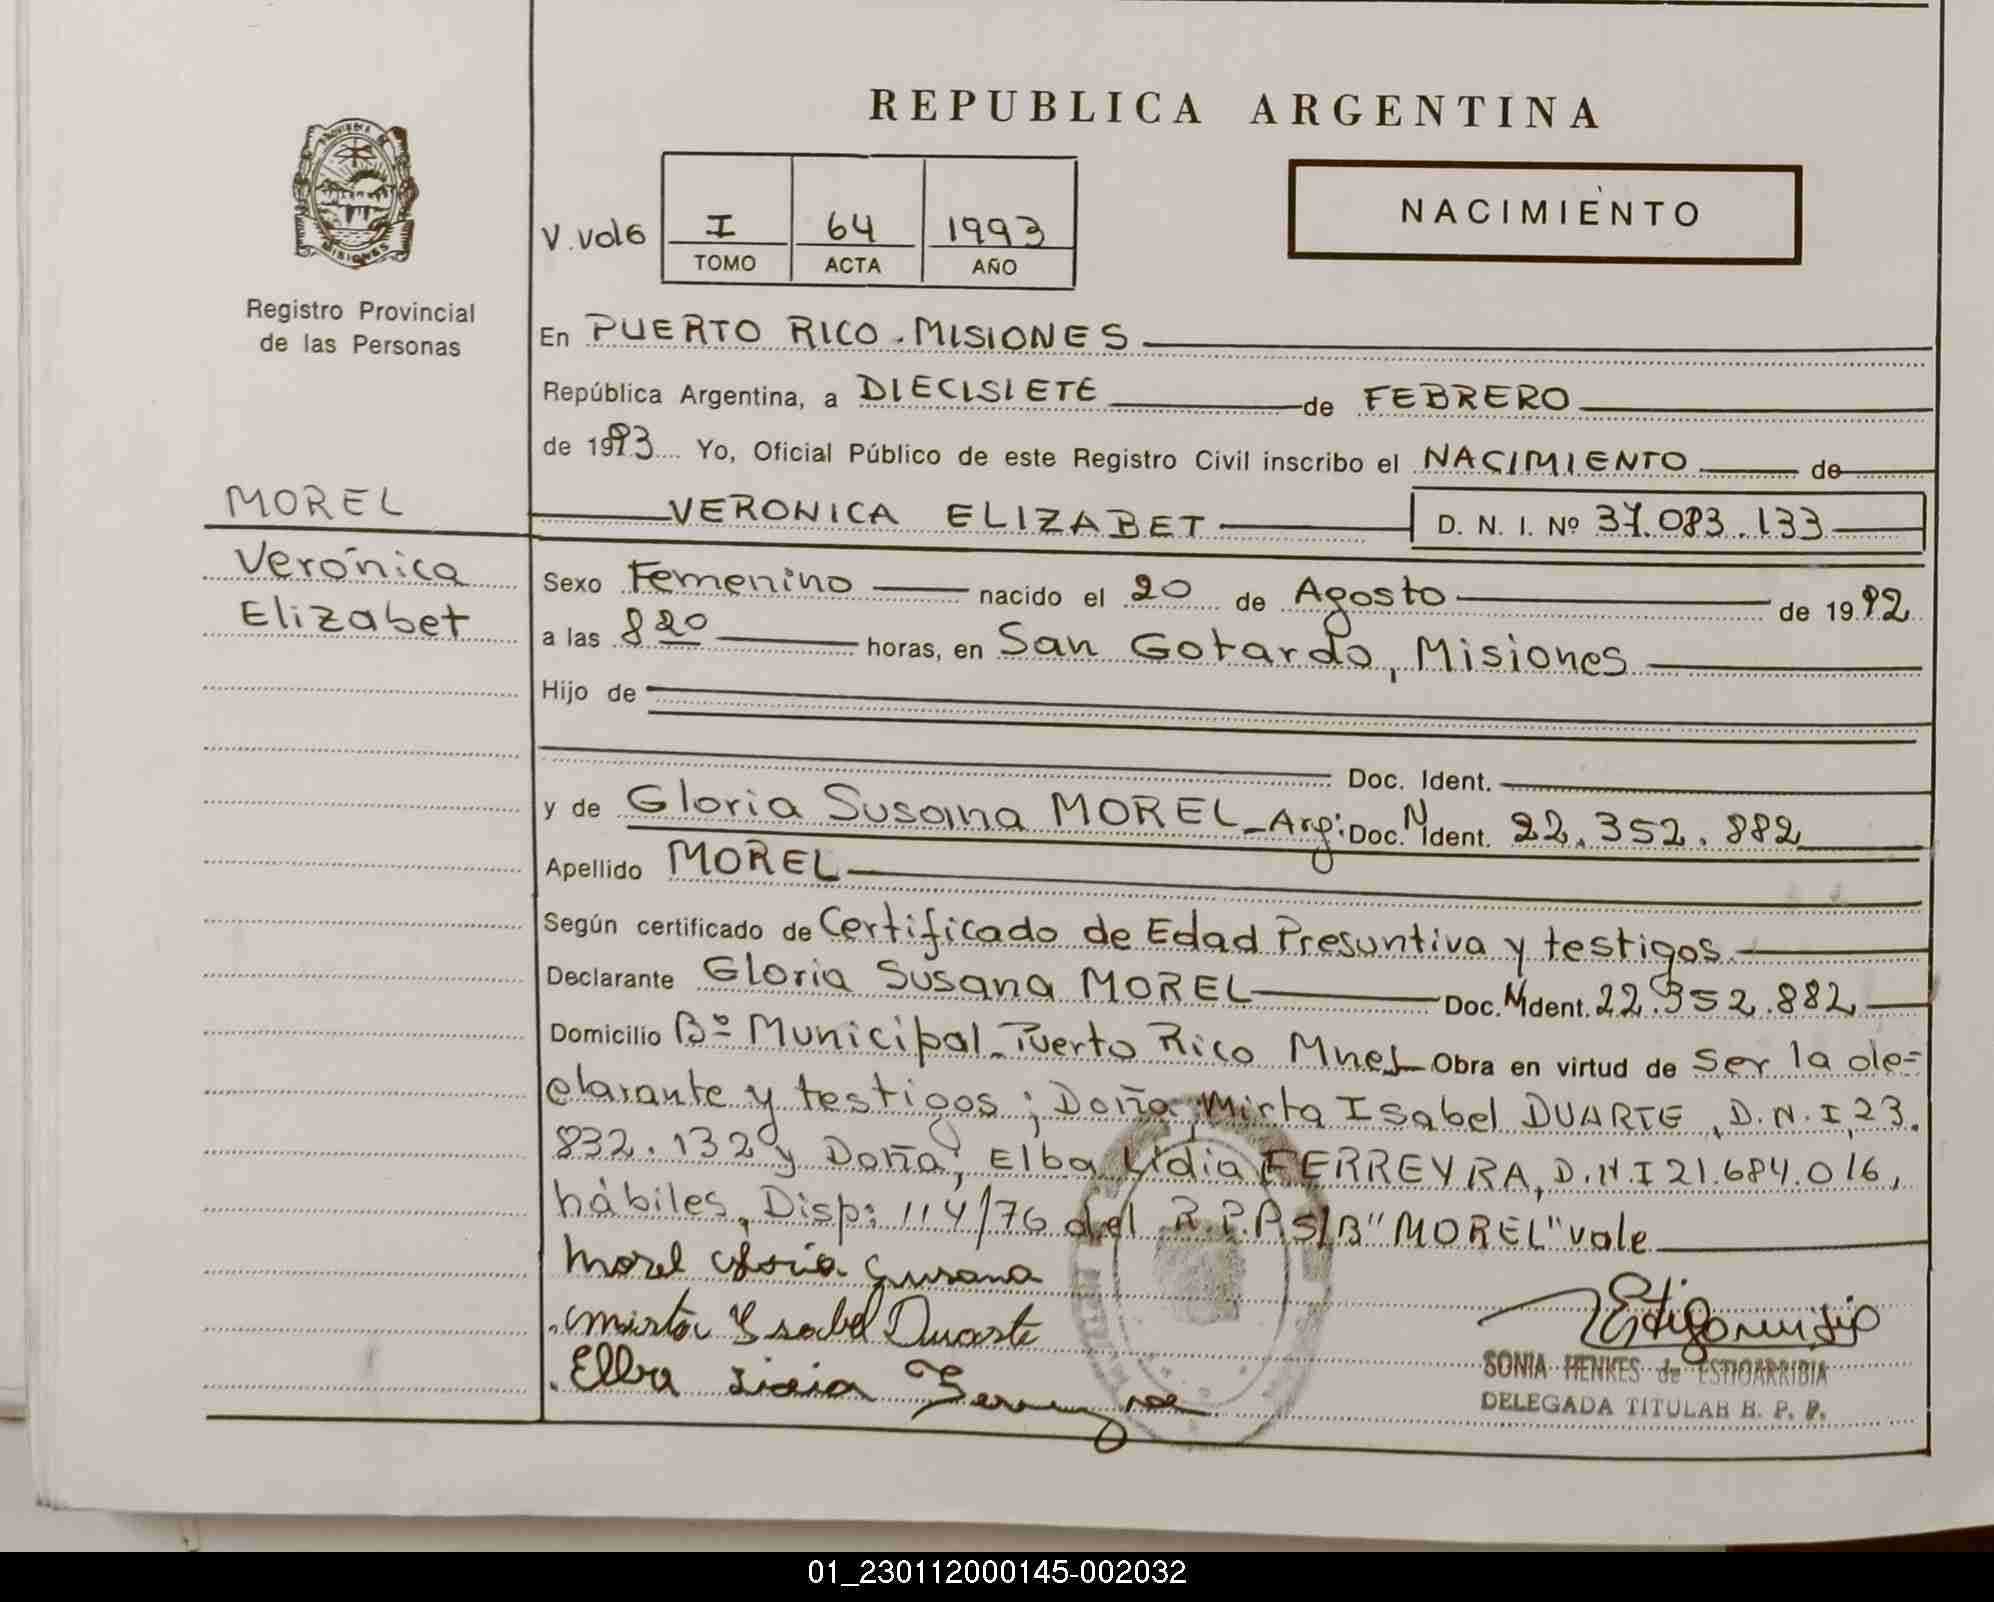 REPUBLICA ARGENTINA
NACIMIENTO
V. vol6 I 64 1993
TOMO ACTA AÑO
Registro Provincial
de las Personas
En PUERTO RICO. MISIONES
República Argentina, a DIECISIETE de FEBRERO
de 1993 Yo, Oficial Público de este Registro Civil inscribo el NACIMIENTO de
MOREL
VERONICA ELIZABET D. N. I. Nº 37.083.133
Verónica
Elizabet
Sexo Femenino nacido el 20 de Agosto de 1992
a las 8 20 horas, en San Gotardo, Misiones
Hijo de
Doc. Ident.
y de Gloria Susana MOREL - Arg: Doc. N Ident. 22.352.882
Apellido MOREL
Según certificado de Certificado de Edad Presuntiva y testigos
Declarante Gloria Susana MOREL Doc. N Ident. 22.352.882
Domicilio Bº Municipal - Puerto Rico Mnes Obra en virtud de ser la de=
clarante y testigos; Doña, Mirta Isabel DUARTE, D.N.I, 23.
832.132 y Doña, Elba Lidia FERREYRA, D.N.I 21.684.016,
hábiles, Disp: 114/76 del R.P.P. S/B "MOREL" vale
Morel Gloria Susana
Mirta Ysabel Duarte
Elba Lidia Ferreyra
SONIA HENKES de ESTIGARRIBIA
DELEGADA TITULAR R. P. P.
01_230112000145-002032